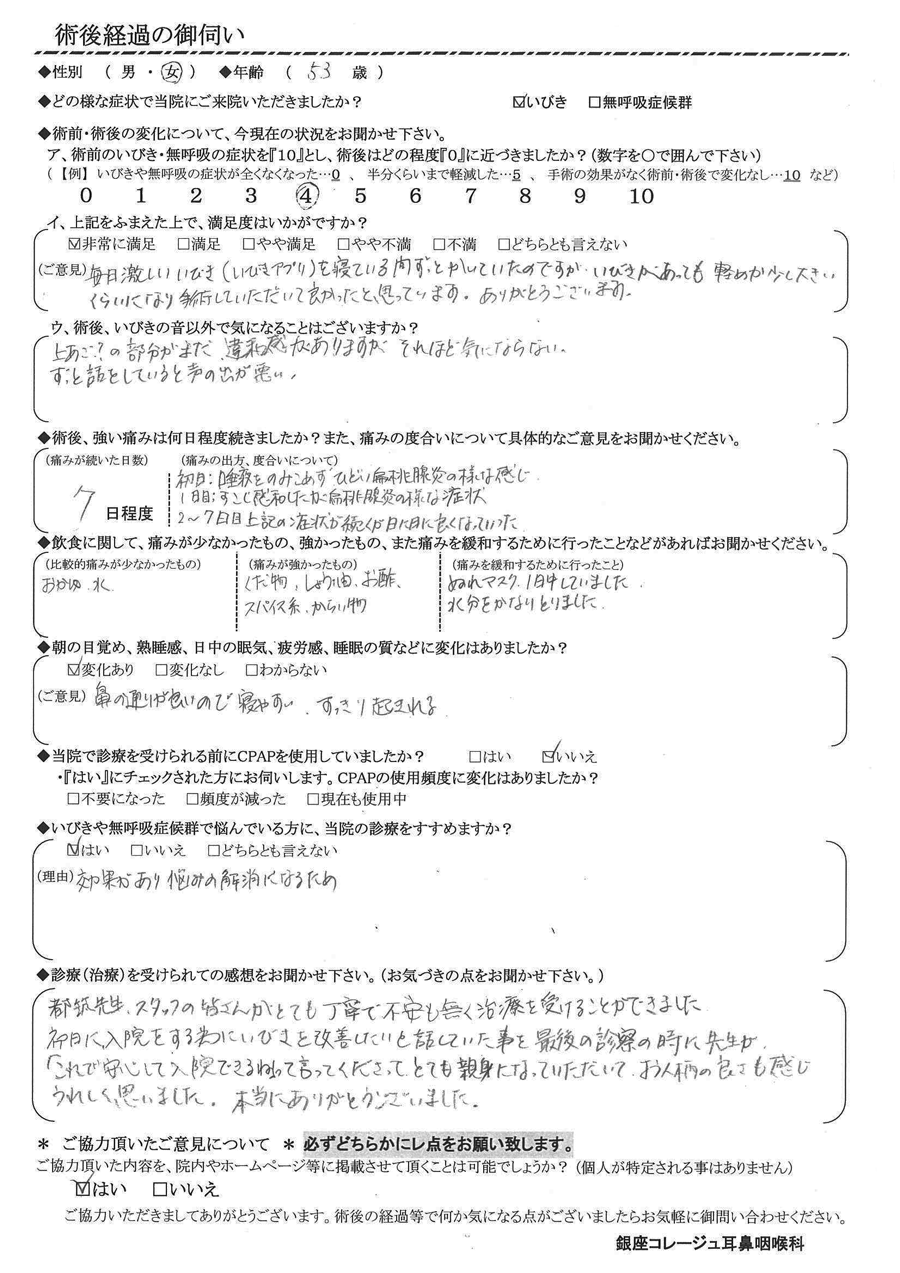 術後経過の御伺い
◆性別 （ 男 ・ 女 ） ◆年齢 （ 53 歳 ）
◆どの様な症状で当院にご来院いただきましたか？ ☑いびき □無呼吸症候群
◆術前・術後の変化について、今現在の状況をお聞かせ下さい。
ア、術前のいびき・無呼吸の症状を『10』とし、術後はどの程度『0』に近づきましたか？（数字を〇で囲んで下さい）
（ 【例】 いびきや無呼吸の症状が全くなくなった…0 、 半分くらいまで軽減した…5 、 手術の効果がなく術前・術後で変化なし…10 など）
0 1 2 3 4 5 6 7 8 9 10
イ、上記をふまえた上で、満足度はいかがですか？
☑非常に満足 □満足 □やや満足 □やや不満 □不満 □どちらとも言えない
（ご意見） 毎日激しいいびき（いびきアプリ）を寝ている間ずっとかいていたのですが、いびきがあっても 軽めか少し大きい
くらいになり手術していただいて良かったと思っています。ありがとうございます。
ウ、術後、いびきの音以外で気になることはございますか？
上あご？の部分がまだ 違和感がありますが それほど気にならない。
ずっと話をしていると声の出が悪い。
◆術後、強い痛みは何日程度続きましたか？また、痛みの度合いについて具体的なご意見をお聞かせください。
（痛みが続いた日数） （痛みの出方、度合いについて）
初日：唾液をのみこめず ひどい扁桃腺炎の様な感じ
1日目：すこし感和したが扁桃腺炎の様な症状
7 日程度
2〜7日目 上記の症状が続くが日に日に良くなっていった
◆飲食に関して、痛みが少なかったもの、強かったもの、また痛みを緩和するために行ったことなどがあればお聞かせください。
（比較的痛みが少なかったもの） （痛みが強かったもの） （痛みを緩和するために行ったこと）
おかゆ 水 くだ物、しょう油、お酢、 ぬれマスク 1日中していました
スパイス系、からい物 水分をかなりとりました
◆朝の目覚め、熟睡感、日中の眠気、疲労感、睡眠の質などに変化はありましたか？
☑変化あり □変化なし □わからない
（ご意見） 鼻の通りが良いので寝やすい、すっきり起きれる
◆当院で診療を受けられる前にCPAPを使用していましたか？ □はい ☑いいえ
・『はい』にチェックされた方にお伺いします。CPAPの使用頻度に変化はありましたか？
□不要になった □頻度が減った □現在も使用中
◆いびきや無呼吸症候群で悩んでいる方に、当院の診療をすすめますか？
☑はい □いいえ □どちらとも言えない
（理由） 効果があり悩みの解消になるため
◆診療（治療）を受けられての感想をお聞かせ下さい。（お気づきの点をお聞かせ下さい。）
都筑先生、スタッフの皆さんがとても丁寧で不安も無く治療を受けることができました
初日に、入院をする為にいびきを改善したいと話していた事を最後の診察の時に先生が
「これで安心して入院できるねって言ってくださって、とても親身になっていただいて、お人柄の良さも感じ
うれしく思いました。本当にありがとうございました。
＊ ご協力頂いたご意見について ＊ 必ずどちらかにレ点をお願い致します。
ご協力頂いた内容を、院内やホームページ等に掲載させて頂くことは可能でしょうか？（個人が特定される事はありません）
☑はい □いいえ
ご協力いただきましてありがとうございます。術後の経過等で何か気になる点がございましたらお気軽に御問い合わせください。
銀座コレージュ耳鼻咽喉科